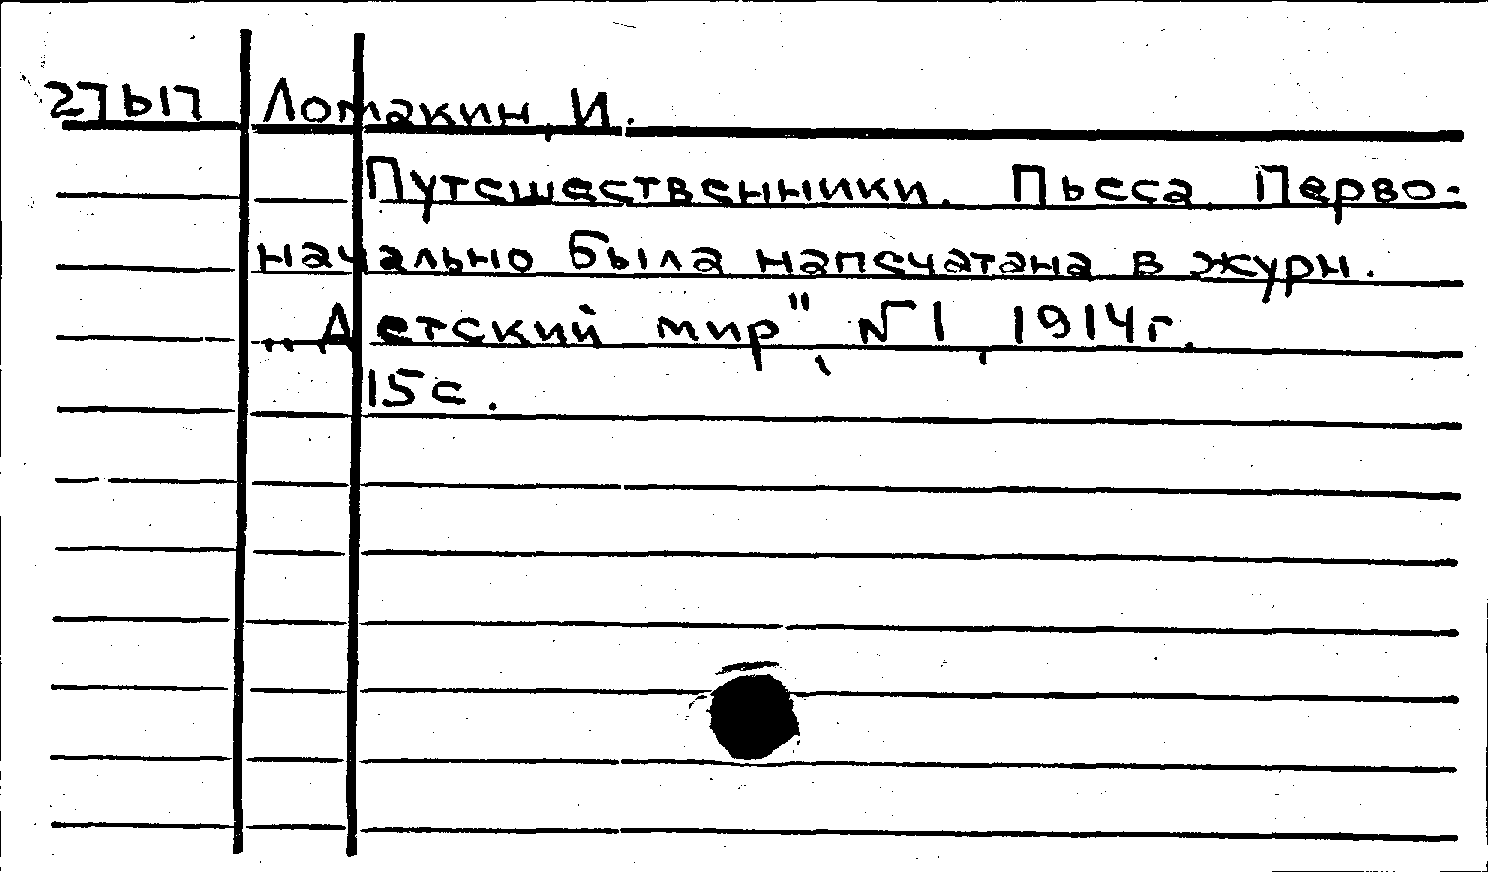 27 Ы7 Ломакин, И.
Путешественники. Пьеса. Перво-
начально была напечатана в журн.
„Детский мир", №1, 1914г.
15с.